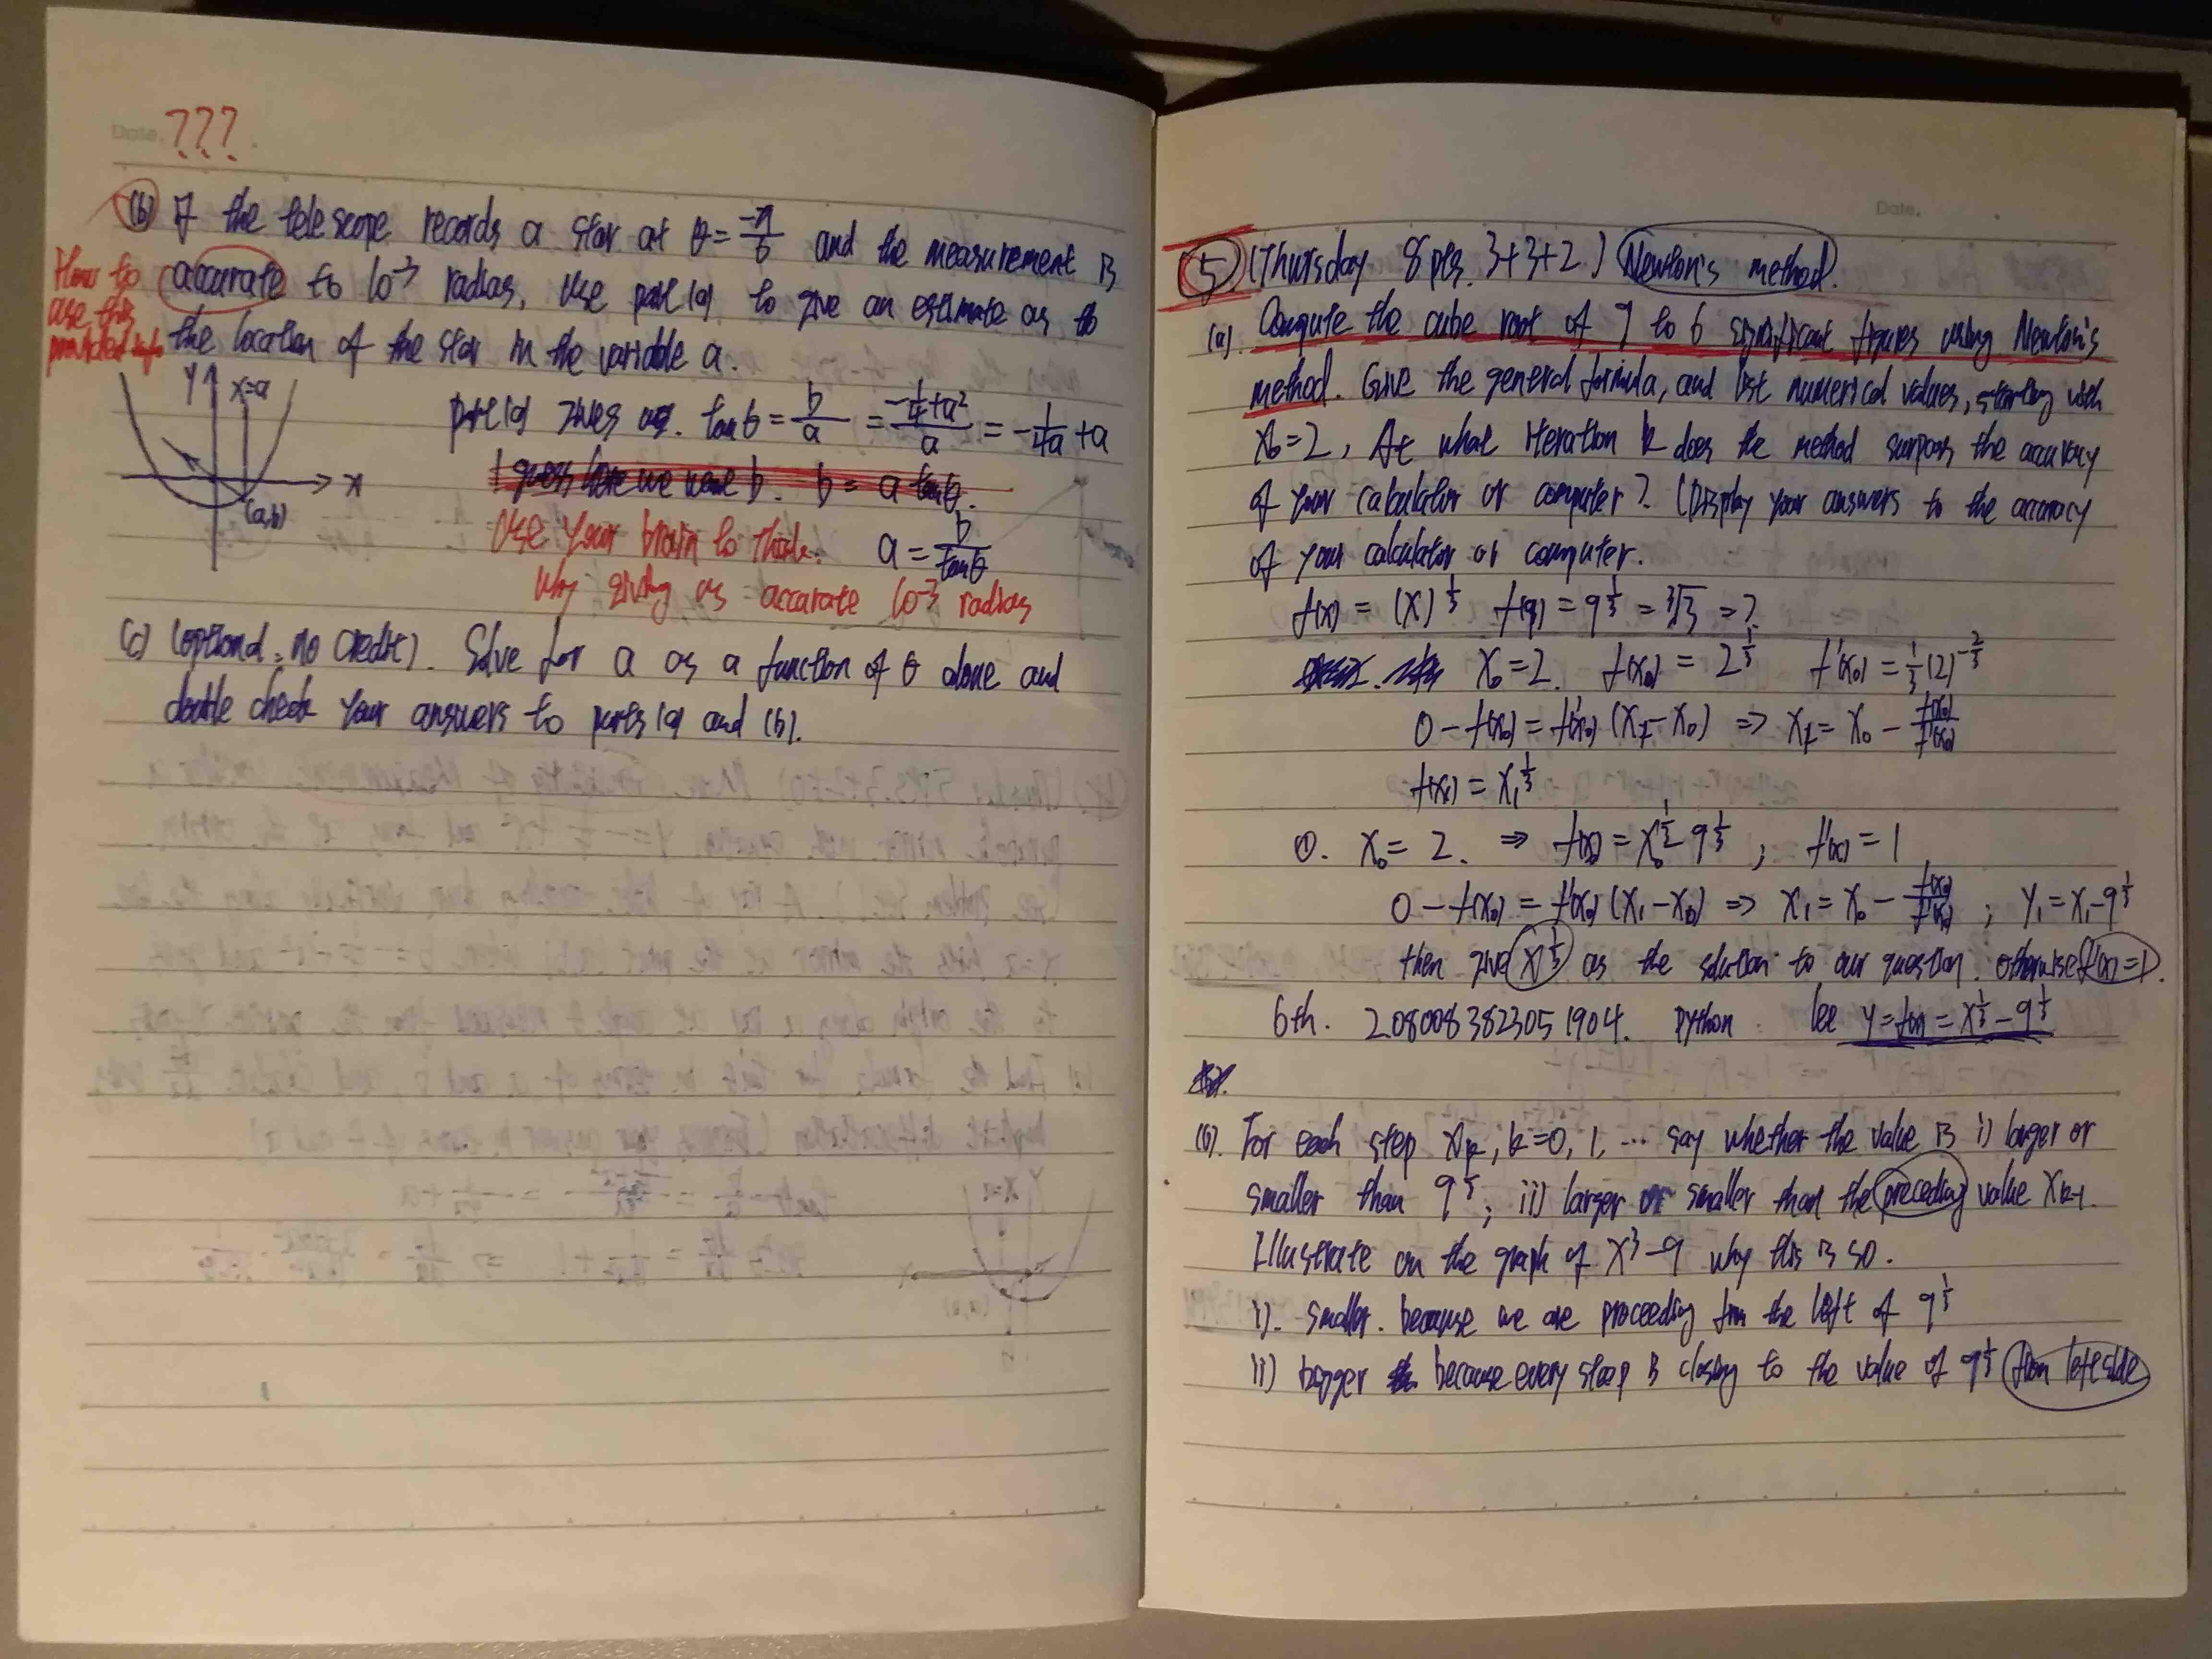 Date. ???
(b) If the telescope records a star at θ = -π/6 and the measurement is
accurate to 10⁻³ radias, use part (a) to give an estimate as to
the location of the star in the variable a.
How to use this provided info
Y x=a
X
(a,b)
part (a) gives us. tanθ = b/a = (-1/4+a²)/a = -1/4a + a
I guess here we want b. b = a tanθ.
Use your brain to think. a = b/tanθ
Why giving us accurate 10⁻³ radias
(c) (optional: no credit). Solve for a as a function of θ alone and
double check your answers to parts (a) and (b).
Date.
5 (Thursday 8pts. 3+3+2) Newton's method.
(a). Compute the cube root of 9 to 6 significant figures using Newton's
method. Give the general formula, and list numerical values, starting with
x₀=2, At what iteration k does the method surpass the accuracy
of your calculator or computer? (Display your answers to the accuracy
of your calculator or computer.
f(x) = (x)^⅓ f(9) = 9^⅓ = ³√3 = ?
x₀=2. f(x₀) = 2^⅓ f'(x₀) = ⅓(2)^-⅔
0 - f(x₀) = f'(x₀)(x₁-x₀) ⇒ x₁ = x₀ - f(x₀)/f'(x₀)
f(x₁) = x₁^⅓
①. x₀ = 2. ⇒ f(x₀) = x₀ - 9^⅓ ; f'(x) = 1
0 - f(x₀) = f'(x₀)(x₁-x₀) ⇒ x₁ = x₀ - f(x₀)/f'(x₀) ; y₁ = x₁-9^⅓
then give x^⅓ as the solution to our question. otherwise f'(x)=1.
6th. 2.080083823051904. python let y=f(x) = x^⅓-9^⅓
(b). For each step xₖ, k=0, 1, ... say whether the value is i) larger or
smaller than 9^⅓; ii) larger or smaller than the preceding value xₖ₋₁.
Illustrate on the graph of x³-9 why this is so.
i). smaller. because we are proceeding from the left of 9^⅓
ii) bigger because every step is closing to the value of 9^⅓ from left side